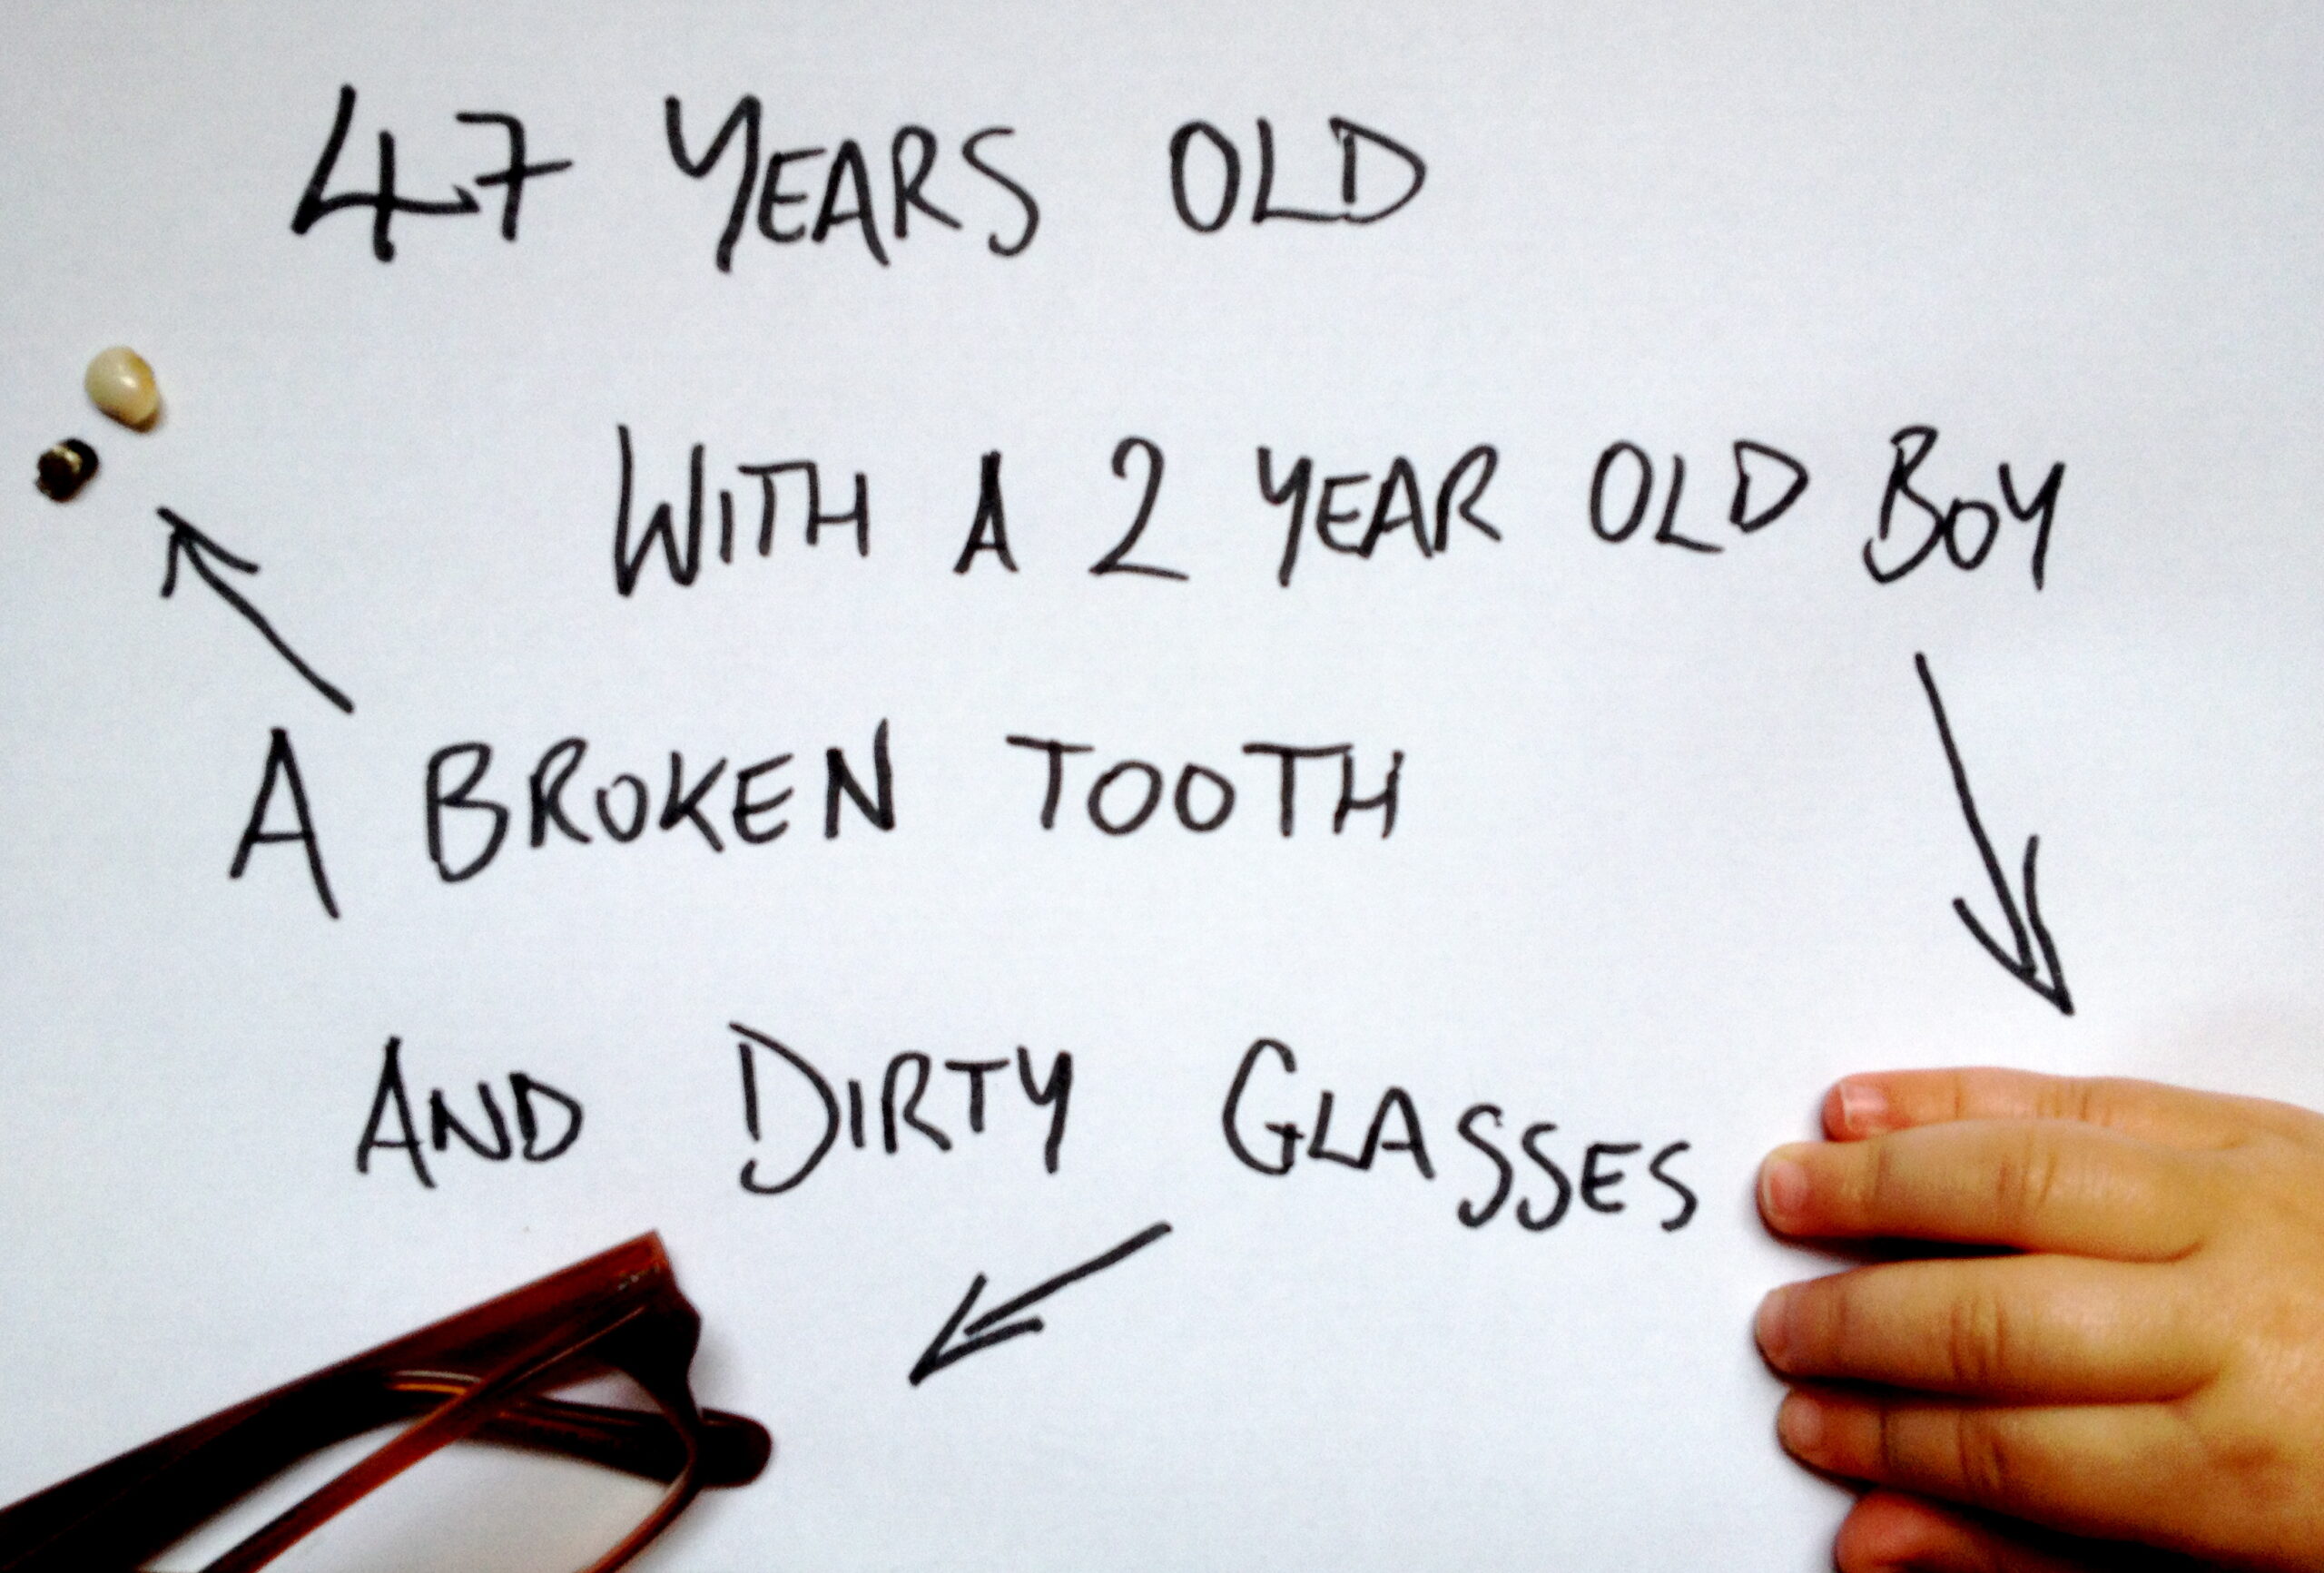 47 YEARS OLD
WITH A 2 YEAR OLD BOY
A BROKEN TOOTH
AND DIRTY GLASSES